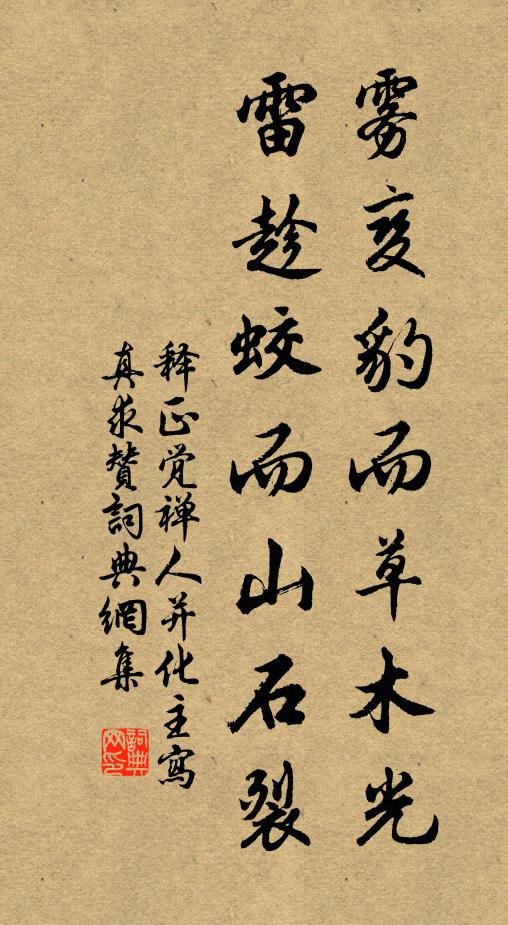 雾变豹而草木光
雷趁蛟而山石裂
释正觉禅人并化主写
真求赞詞典網集
詞典
网印